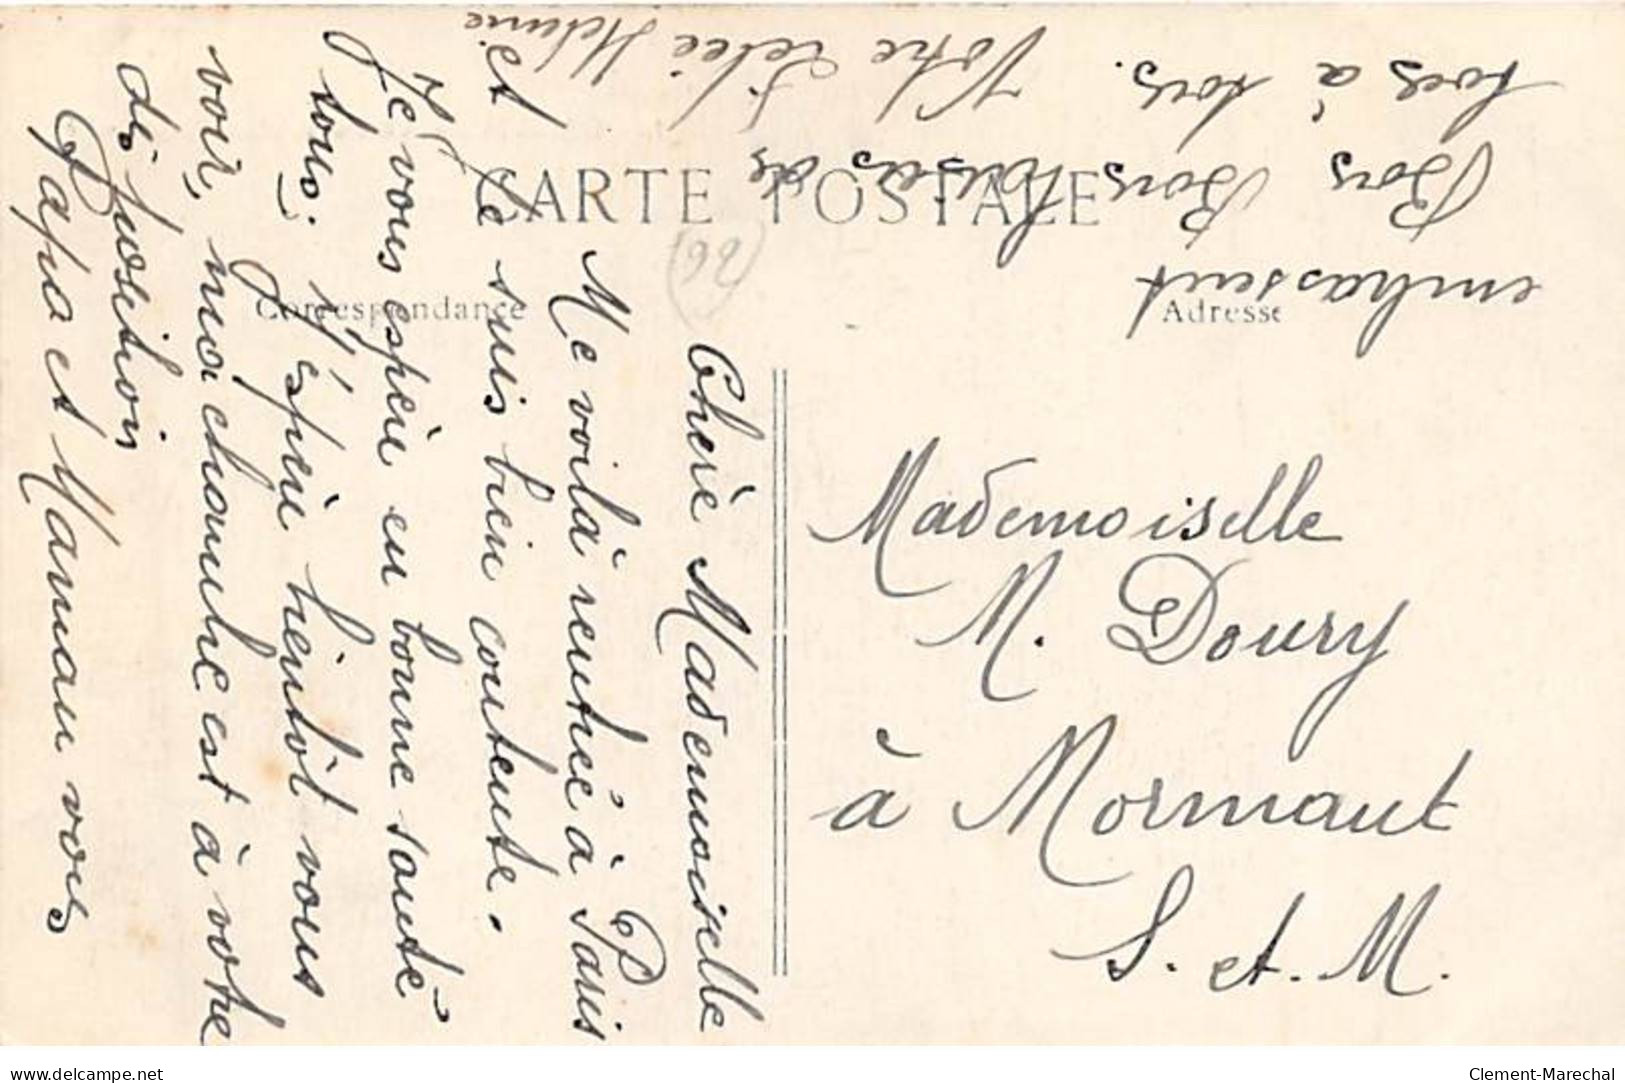 CARTE POSTALE
Correspondance
Adresse
Chère Mademoiselle
Me voilà rentrée à Paris
et je suis bien contente.
Je vous espère en bonne santé
tous. J'éspère bientôt vous
voir, ma chambre est à votre
disposition
Papa et Maman vous
embrassent
Bons Bons baisers de
tous à tous.
Votre Hélène
Mademoiselle
M. Doury
à Mormant
S. et. M.
26
Delcampe.net
Clement-Marechal